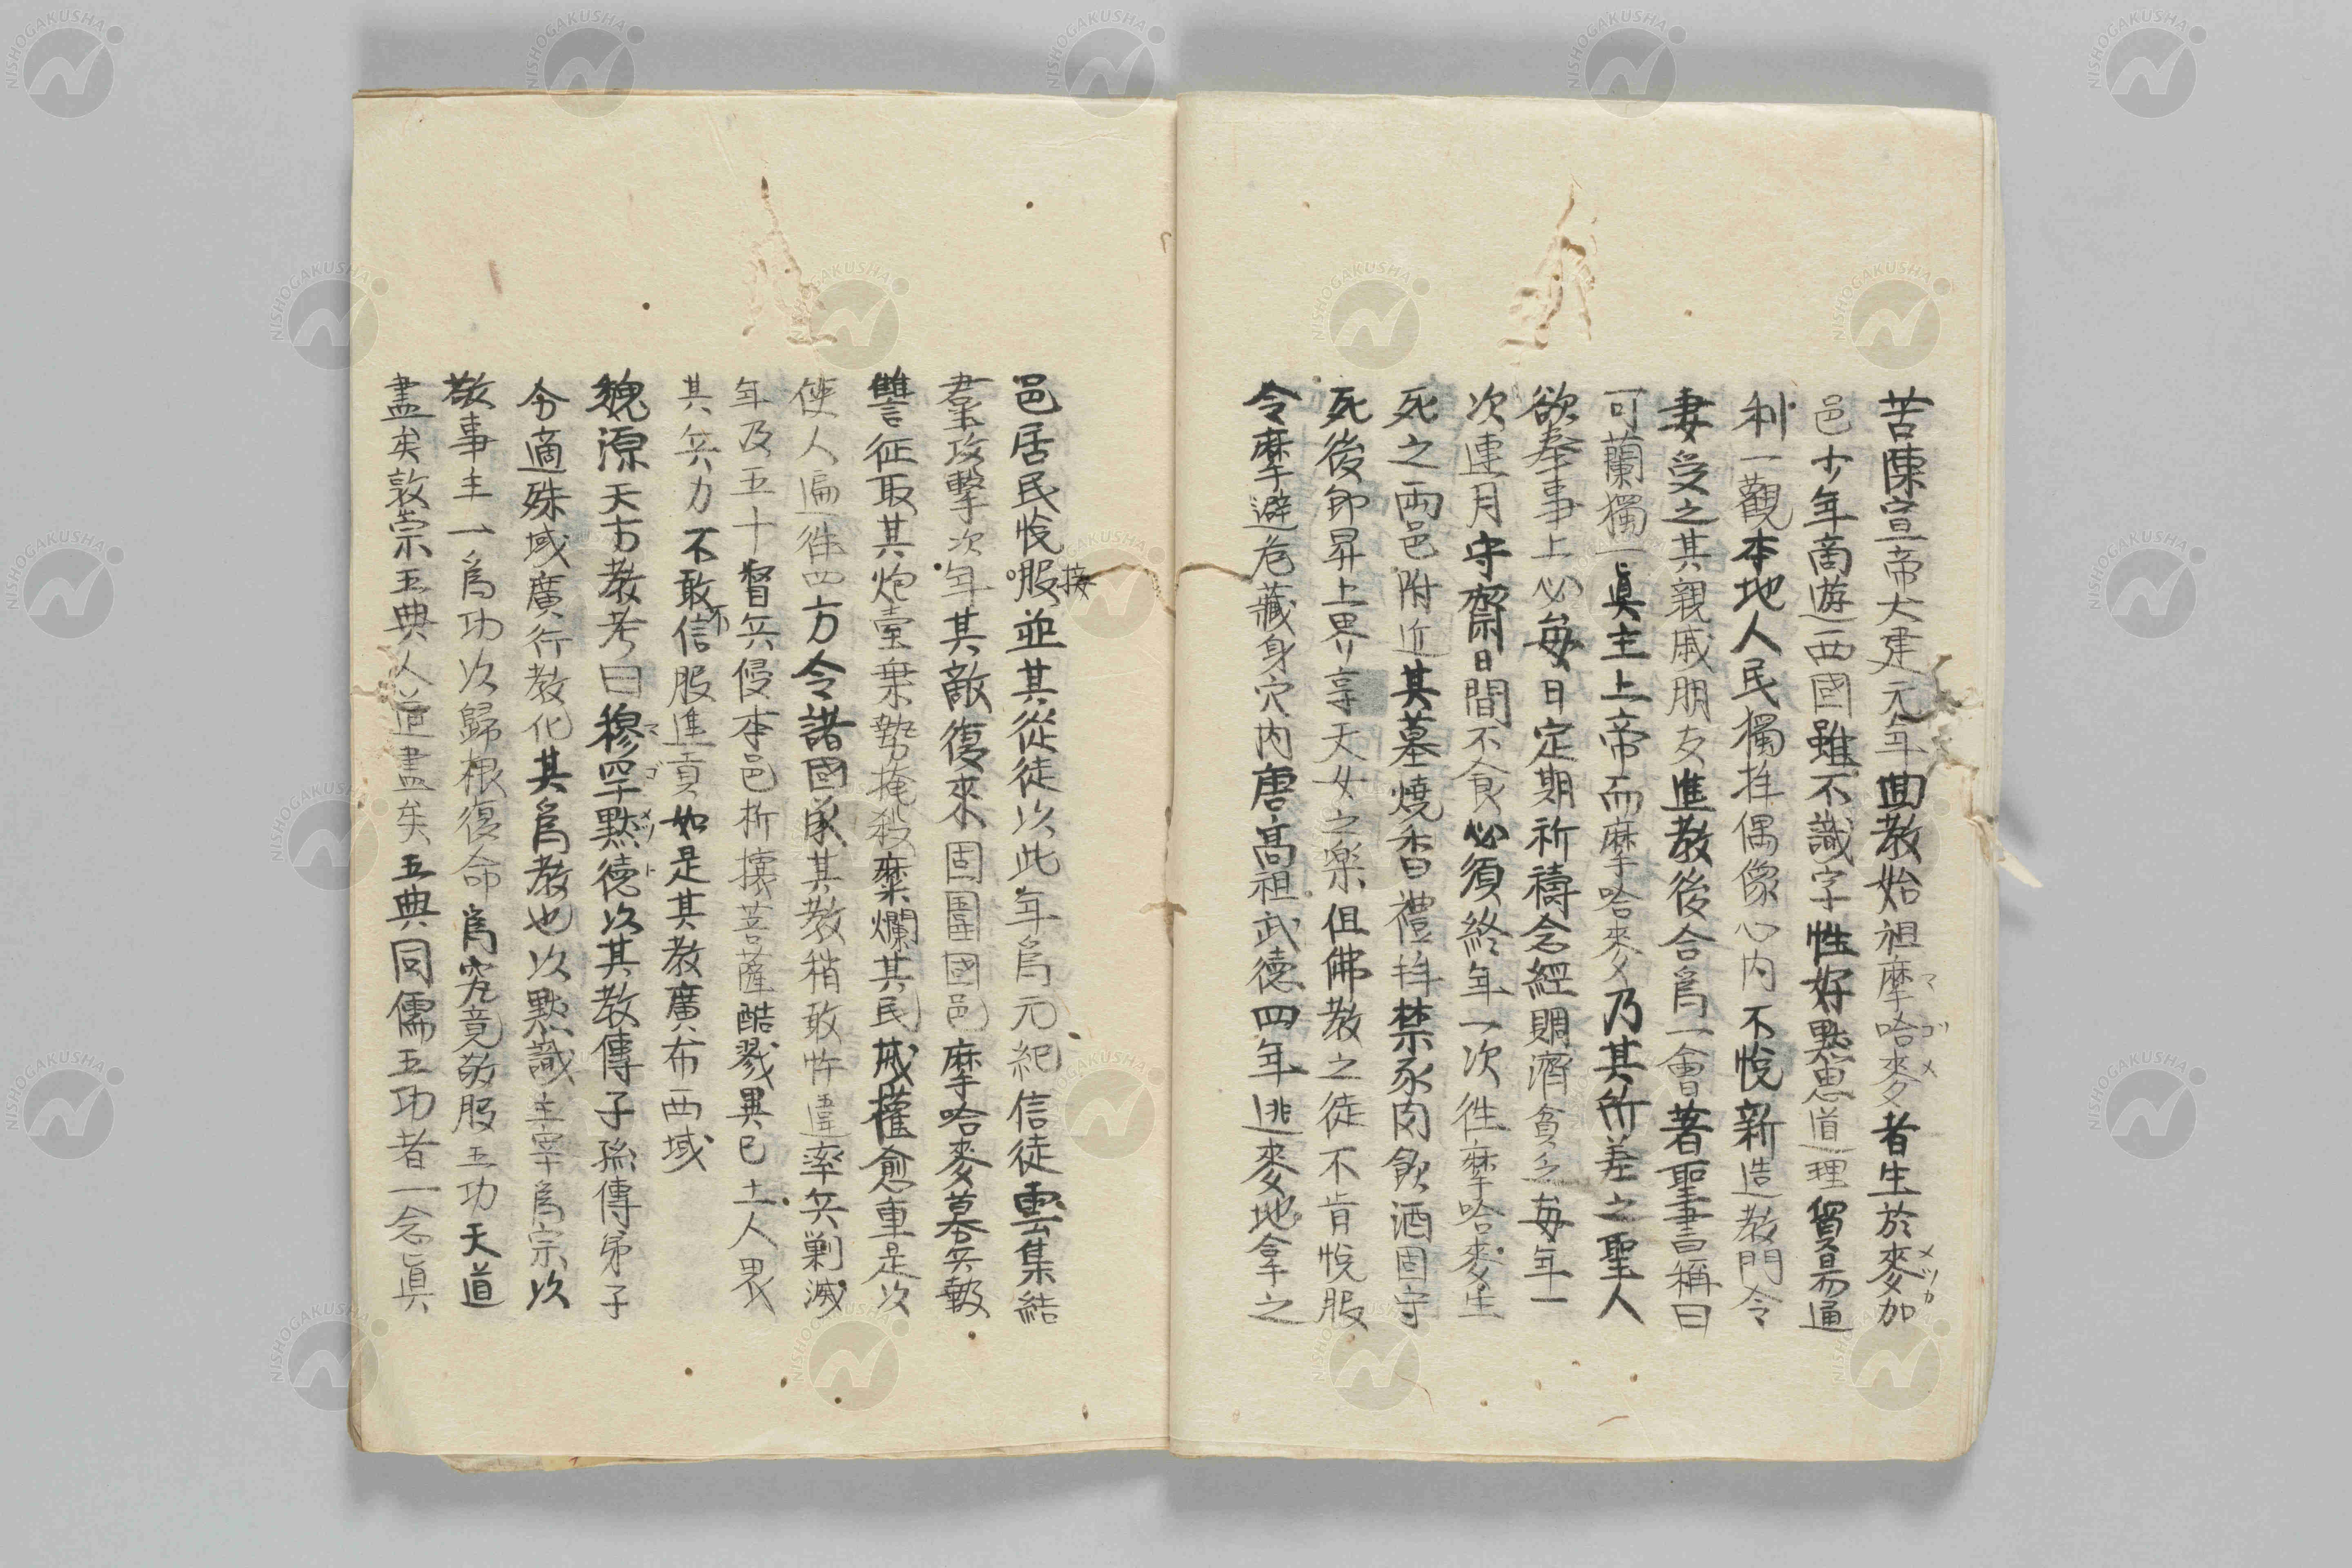 苦陳宣帝大建元年回教始祖摩哈麥者生於麥加
邑少年商遊西國雖不識字性好黙思道理貿易通
利一觀本地人民獨拝偶像心内不悅新造教門令
妻受之其親戚朋友進教後合爲一會著聖書稱曰
可蘭獨一眞主上帝而摩哈麥乃其所差之聖人
欲奉事上必每日定期祈禱念經賙濟貧乏每年一
次連月守齋日間不食必須終年一次徃摩哈麥生
死之兩邑附近其墓燒香禮拝禁豕肉飲酒固守
死後即昇上界享天女之樂但佛教之徒不肯悅服
令摩避危藏身穴内唐髙祖武德四年逃麥地拿之
邑居民悅服接並其從徒以此年爲元紀信徒雲集結
羣攻擊次年其敵復來固圍國邑摩哈麥募兵報
讐征取其炮臺乗勢掩殺糜爛其民威權愈重是次
使人遍徃四方令諸國承其教稍敢忤違率兵剿滅
年及五十督兵侵本邑折壞菩薩酷戮異已土人畏
其兵力不敢不信服進貢如是其教廣布西域
魏源天方教考曰穆罕黙德以其教傳子孫傳弟子
今適殊域廣行教化其爲教也以黙識主宰爲宗以
敬事主一爲功以歸根復命爲究竟敬服五功天道
盡矣敦崇五典人道盡矣五典同儒五功者一念眞
マゴメ
メツカ
マゴメツト
NISHOGAKUSHA